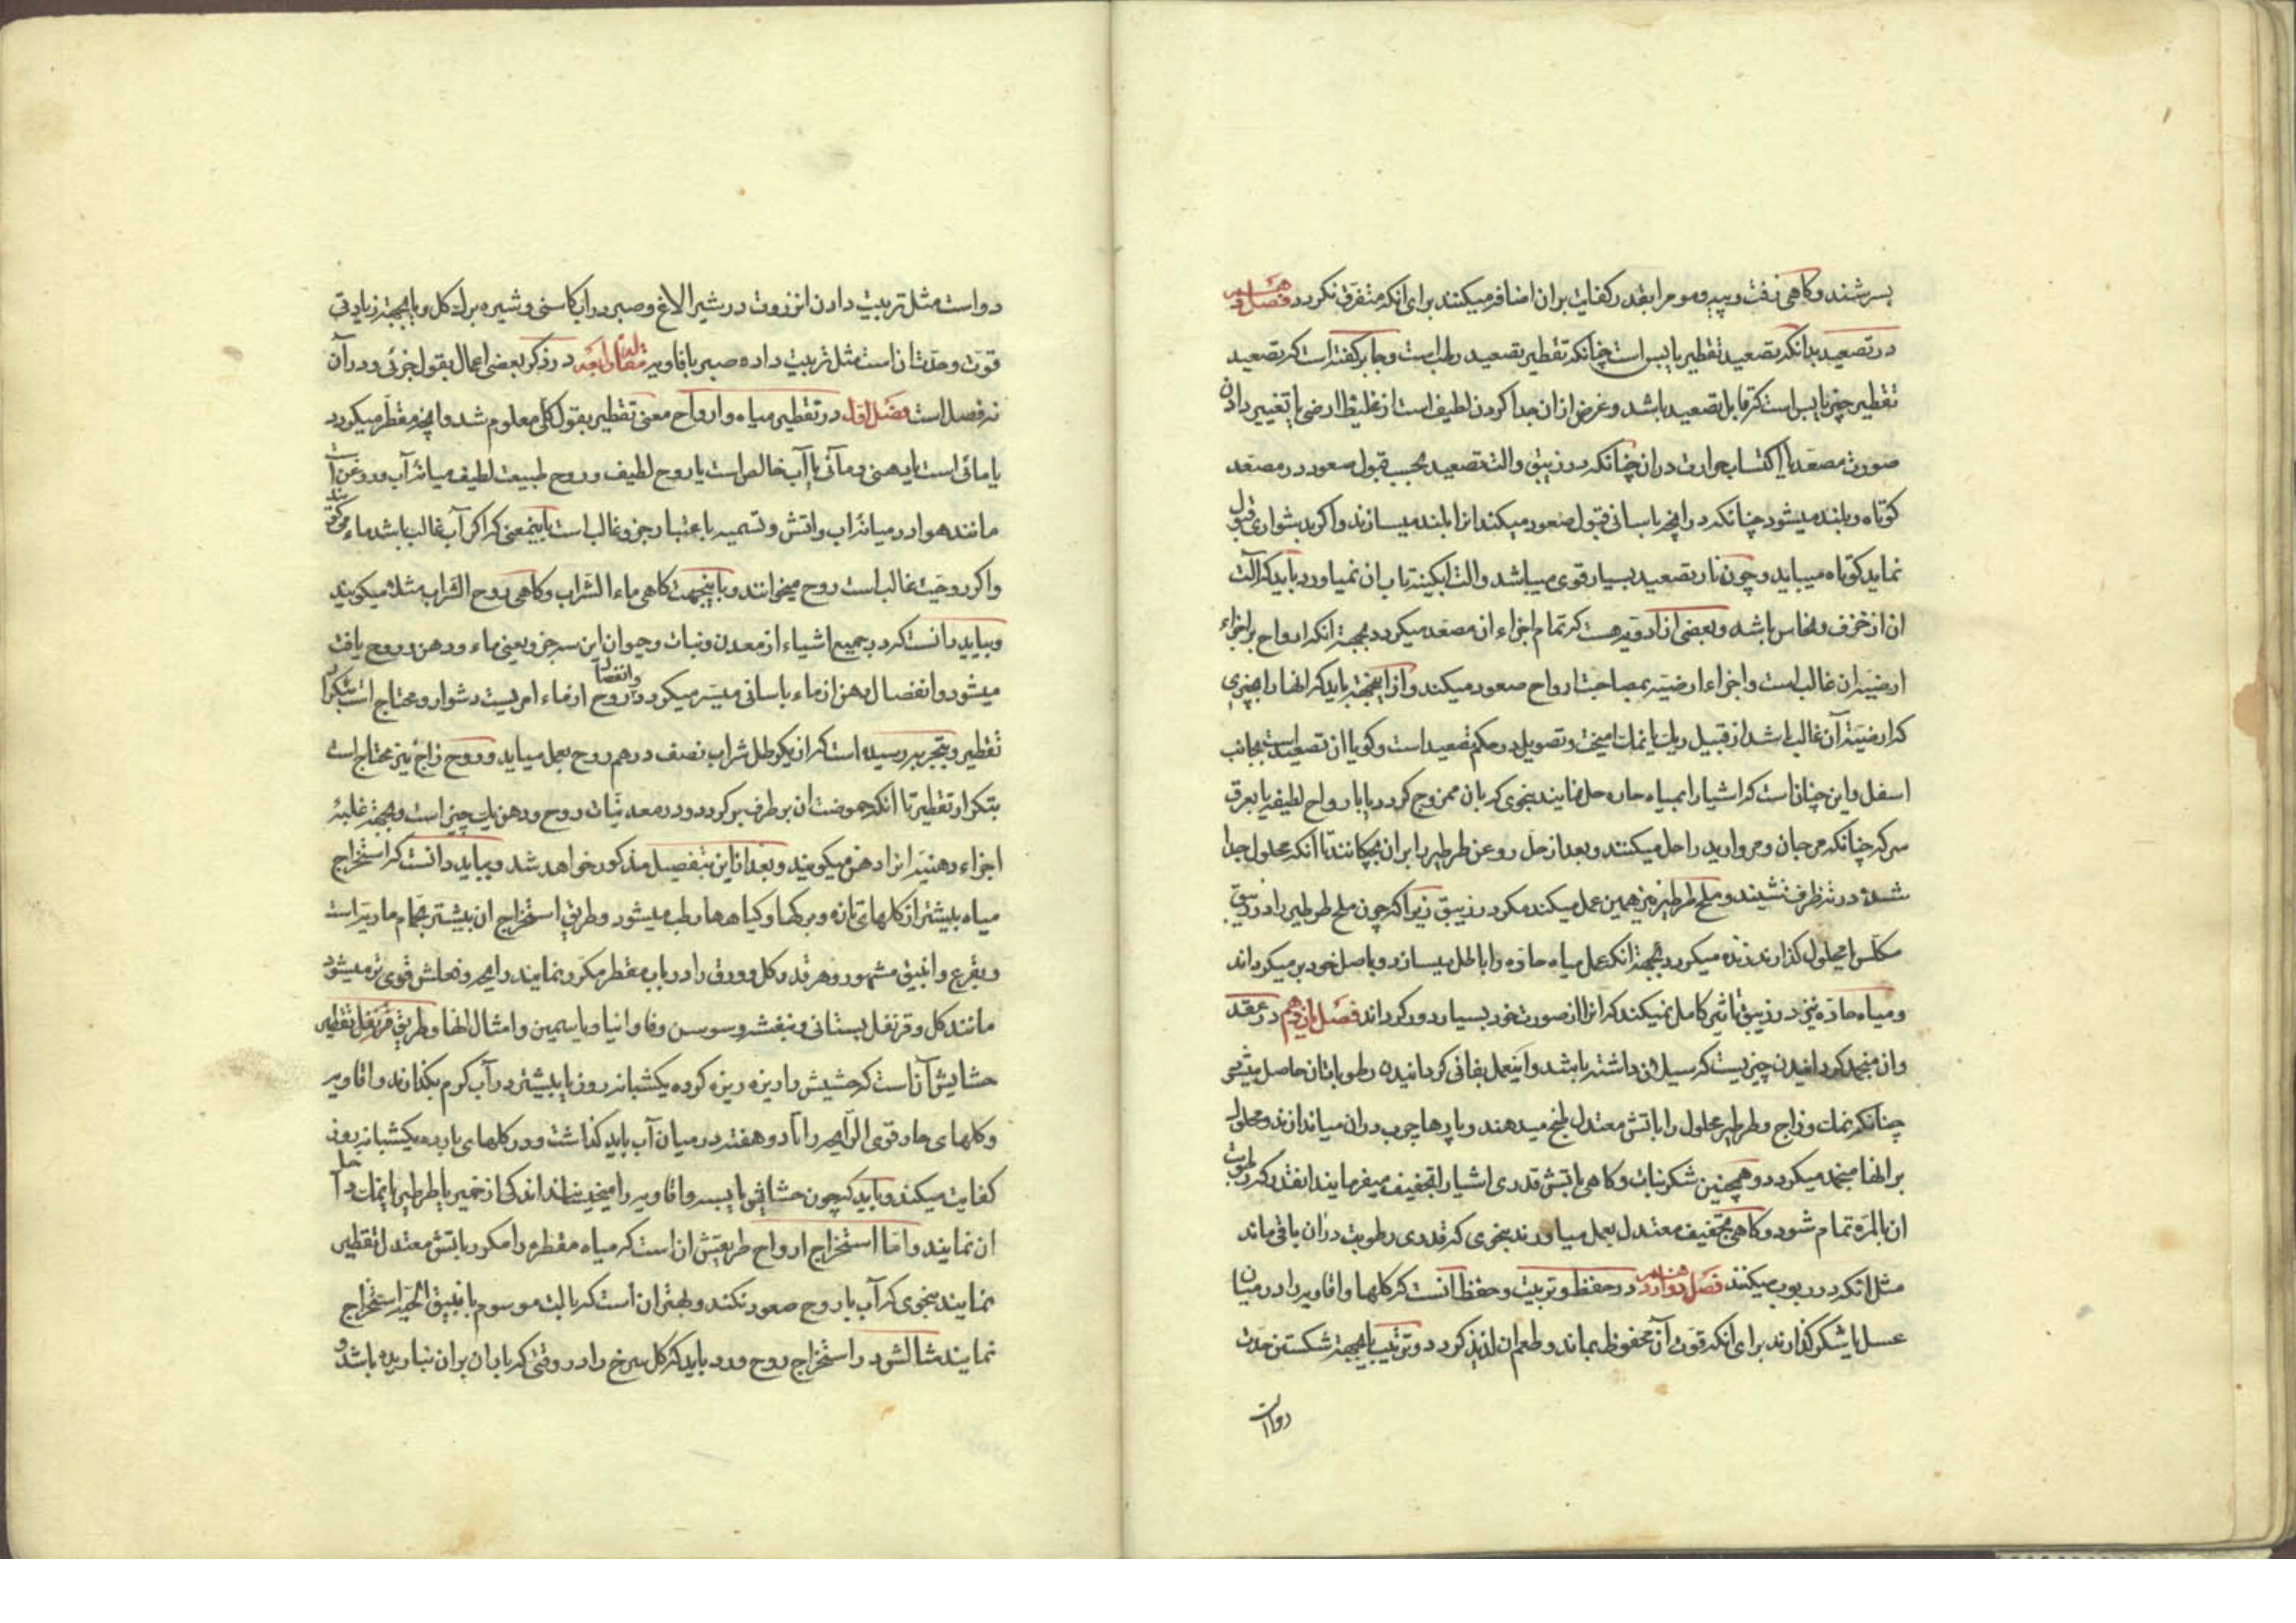 بسرشند و کاهی زفت و پیه و موم را بقدر کفایت بران اضافه میکنند برای انکه متفرق نکردد فصل دهم
در تصعید بدانکه تصعید تقطیر یابس است چنانکه تقطیر تصعید رطب است و جابر کفته است که تصعید
تقطیر چیز یابس است که قابل تصعید باشد و غرض ازان جدا کردن لطیف است از غلیظ ارضی یا تغییر دادن
صورت مصعد یا اکتساب حرارت دران چنانکه در زیبق و الت تصعید بحسب قبول صعود در مصعد
کوتاه و بلند میشود چنانکه در انچه باسانی قبول صعود میکند انرا بلند میسازند و اکر بدشواری قبول
نماید کوتاه میباید و چون نار تصعید بسیار قوی میباشد و الت ابکینه تاب ان نمیاورد باید که آلت
ان از خزف و نحاس باشد و بعضی از ادویه هست که تمام اجزاء ان مصعد میکردد بجهة انکه ارواح بر اجزاء
ارضیه ان غالب است و اجزاء ارضیه بمصاحبت ارواح صعود میکند و ازاینجهة باید که انها را بچیزی
که ارضیة آن غالب باشد از قبیل ریک یا نمک امیخت و تصویل در حکم تصعید است و کویا ان تصعید است بجانب
اسفل و این چنان است که اشیا را بمیاه حاره حل نمایند بنحوی که بان ممزوج کردد یا بارواح لطیفه یا بعرق
سرکه چنانکه مرجان و مروارید را حل میکنند و بعد از حل روغن طرطیر را بران بچکانند تا انکه محلول جدا
شده در ته ظرف نشیند و ملح طرطیر نیز همین عمل میکند مکر در زیبق زیرا که چون ملح طرطیر را در زیبق
مکلس یا محلول کذارند زنده میکردد بجهة انکه عمل میاه حاده را باطل میسازد و باصل خود بر میکرداند
و میاه حاده نیز در زیبق تاثیر کامل نمیکند که انرا از صورت خود بسیار دور کرداند فصل یازدهم در عقد
وان منجمد کردانیدن چیزیست که سیلان داشته باشد و اینعمل بفانی کردانیدن رطوبات ان حاصل میشود
چنانکه نمک و زاج و طرطیر محلول را باتش معتدل طبخ میدهند و پارها چوب دران میاندازند و محلول
برانها منجمد میکردد و همچنین شکر نبات و کاهی باتش قدری اشیا را تخفیف میفرمایند انقدر که رطوبت
ان بالمره تمام شود و کاهی تجفیف معتدل بعمل میاورند بنحوی که قدری رطوبت دران باقی ماند
مثل انکه در ربوب میکنند فصل دوازدهم در حفظ و تربیت و حفظ انست که کلها و افاویه را در میان
عسل یا شکر کذارند برای انکه قوت آن محفوظ بماند و طعم ان لذیذ کردد و تربیت یا بجهة شکستن حدت
دوا است
دواست مثل تربیت دادن انزروت در شیر الاغ و صبر در اب کاسنی و شیره برک کل و یا بجهة زیادتی
قوت و حدت ان است مثل تربیت داده صبر بافاویه مقاله رابعه در ذکر بعضی اعمال بقول جزئی و در آن
نه فصل است فصل اول در تقطیر میاه و ارواح معنی تقطیر بقول کلی معلوم شد و انچه مقطر میکردد
یا مائی است یا دهنی و مائی یا آب خالص است یا روح لطیف و روح طبیعت لطیف میانه آب و روغن است
مانند هوا در میانه اب و اتش و تسمیه باعتبار جزو غالب است باینمعنی که اکر آب غالب باشد ماء می کویند
و اکر روحیت غالب است روح میخوانند و باینجهت کاهی ماء الشراب و کاهی روح الشراب مثلا میکویند
و بباید دانست که در جمیع اشیاء از معدن و نبات و حیوان این سه جزو یعنی ماء و دهن و روح یافت
میشود و انفصال دهن از ماء باسانی میسر میکردد و انفصال روح از ماء امریست دشوار و محتاج است بتکرار
تقطیر و بتجربه رسیده است که از یکرطل شراب نصف درهم روح بعمل میاید و روح زاج نیز محتاج است
بتکرار تقطیر تا انکه حموضت ان برطرف بر کردد و در معدنیات روح و دهن یک چیز است و بجهة غلبه
اجزاء دهنیه انرا دهن میکویند و بعد از این بتفصیل مذکور خواهد شد و بباید دانست که استخراج
میاه بیشتر از کلهای تازه و برکها و کیاهها رطب میشود و طریق استخراج ان بیشتر بحمام ماریه است
و بقرع و انبیق مشهور و هر قدر کل و ورق را در اب مقطر مکرر نمایند رایحه و فعلش قوی تر میشود
مانند کل و قرنفل بستانی و بنفشه و سوسن و فاوانیا و یاسمین و امثال انها و طریق قرنفل تقطیر
حشایش آن است که حشیش را ریزه ریزه کرده یکشبانه روز یا بیشتر در آب کرم بکذارند و افاویه
و کلهای حار قوی الرایحه را تا دو هفته در میان آب باید کذاشت و در کلهای بارده یکشبانه روز
کفایت میکند و باید که چون حشایش یابسه و افاویه را میخیسانند اندکی از خمیر یا طرطیر یا نمک داخل
ان نمایند و اما استخراج ارواح طریقش ان است که میاه مقطره را مکرر باتش معتدل تقطیر
نمایند بنحوی که آب با روح صعود نکند و بهتر ان است که بالت موسوم بانبیق الحیه استخراج
نمایند مثالش در استخراج روح ورد باید که کل سرخ را در وقتی که باران بران نباریده باشد و